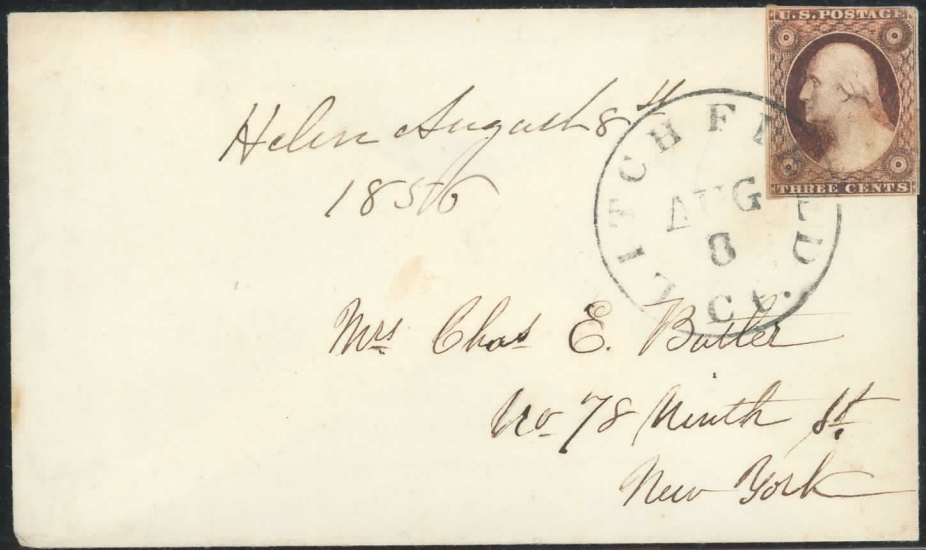 U.S. POSTAGE
THREE CENTS
Helen August 8th
1856
LITCHFIELD
AUG
8
Ct.
Mrs Chas E. Butler
No 78 Ninth St.
New York